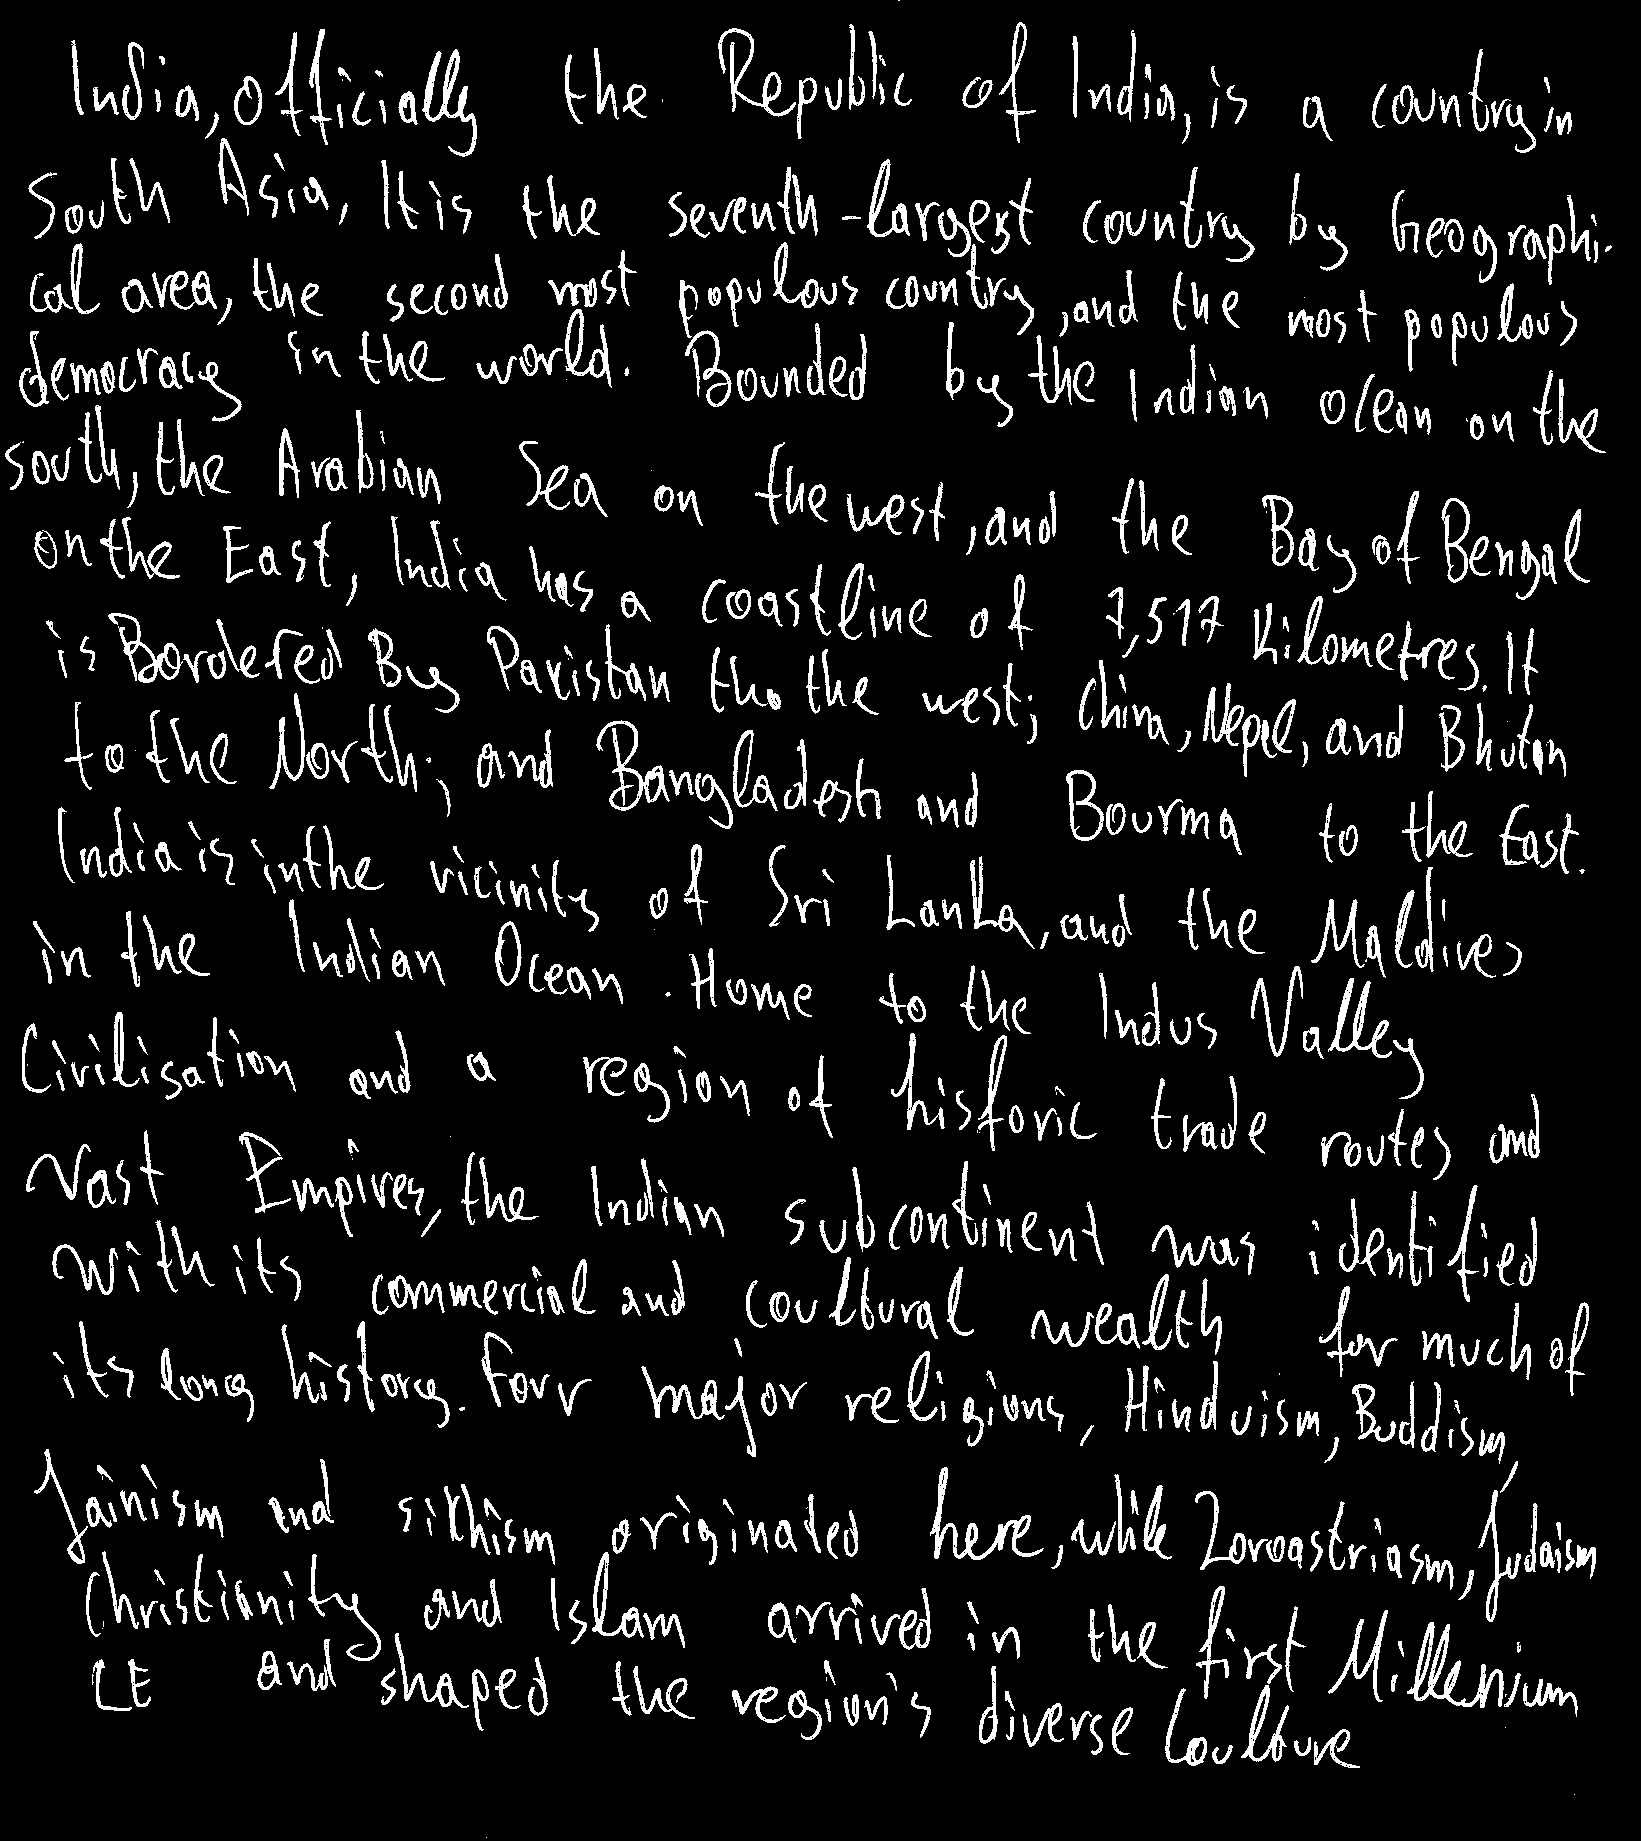 India, officially the Republic of India, is a country in
South Asia, It is the seventh-largest country by Geographi-
cal area, the second most populous country, and the most populous
democracy in the world. Bounded by the Indian Ocean on the
south, the Arabian Sea on the west, and the Bay of Bengal
on the East, India has a coastline of 7,517 Kilometres. It
is Bordered By Pakistan tho the west; China, Nepal, and Bhutan
to the North; and Bangladesh and Bourma to the East.
India is in the vicinity of Sri Lanka, and the Maldives
in the Indian Ocean. Home to the Indus Valley
Civilisation and a region of historic trade routes and
Vast Empires, the Indian subcontinent was identified
with its commercial and coultural wealth for much of
its long history. Four major religions, Hinduism, Buddism,
Jainism and sikhism originated here, while Zoroastriasm, Judaism
Christianity and Islam arrived in the first Millenium
CE and shaped the region's diverse Coulture